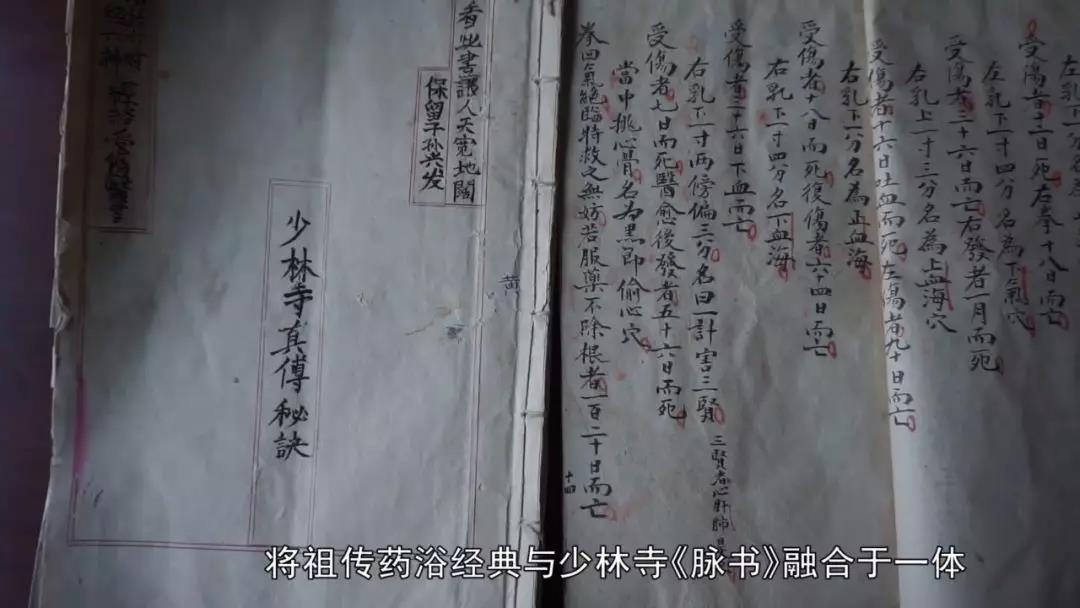 左乳下一分名為
受傷者十二日死右拳十八日而亡
左乳下一寸四分名為下氣穴
受傷者三十六日而亡右發者一月而死
右乳上一寸三分名為上血海穴
受傷者十六日吐血而死左傷者九十日而亡
右乳下一分名為正血海
受傷者十八日而死復傷者六十四日而亡
右乳下一寸四分名下血海
受傷者三十六日下血而亡
右乳下一寸兩傍偏三分名曰一計害三賢 三賢者心肝肺
受傷者七日而死醫愈後發者五十六日而死
當中挑心骨名為黑即偷心穴
拳回氣絕臨特救之無妨若服藥不除根者一百二十日而亡
十四
黄
看此書讓人天宽地闊
保留子孙兴发
少林寺真傳秘訣
将祖传药浴经典与少林寺《脉书》融合于一体